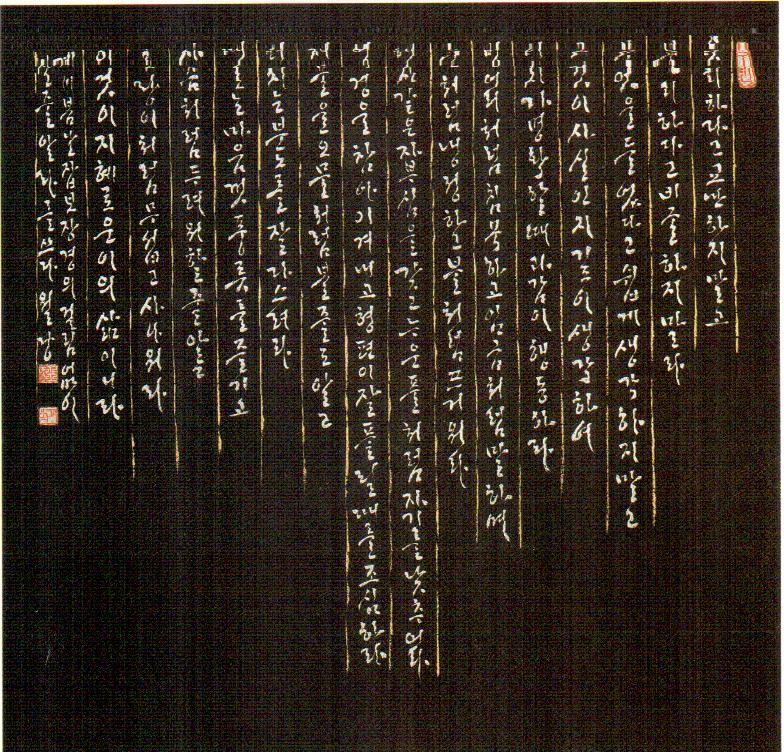 유리하다고 교만하지 말고
불리하다고 비굴하지 말라
무엇을 들었다고 쉽게 생각하지 말고
그것이 사실인지 깊이 생각하여
이치가 명확할 때 과감히 행동하라
벙어리처럼 침묵하고 임금처럼 말하며
눈처럼 냉정하고 불처럼 뜨거워라
태산 같은 자부심을 갖고 누운 풀처럼 자기를 낮추어라
역경을 참아 이겨내고 형편이 잘 풀릴 때를 조심하라
재물을 오물처럼 볼 줄도 알고
터지는 분노를 잘 다스려라
때로는 마음껏 풍류를 즐기고
사슴처럼 두려워할 줄 알고
호랑이처럼 무섭고 사나워라
이것이 지혜로운 이의 삶이니라
봄날 잡보장경의 걸림없이
살 줄 알라를 쓰다